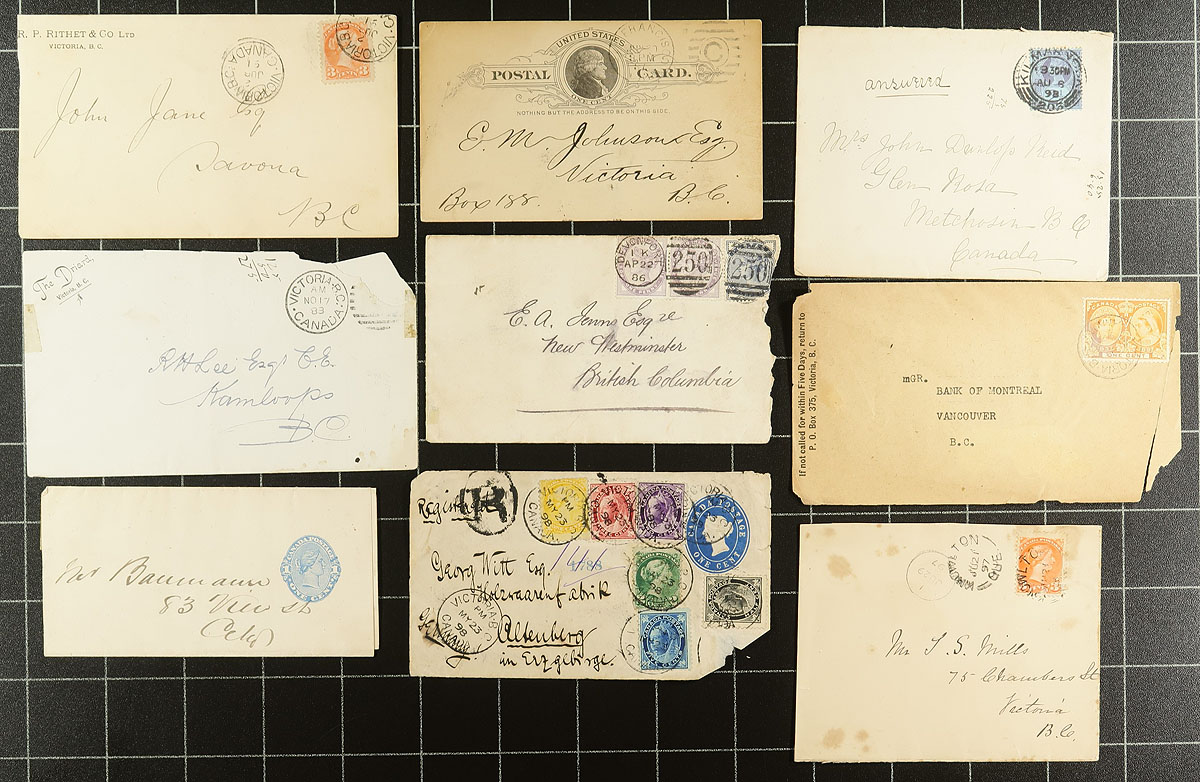 R. P. RITHET & CO LTD
VICTORIA, B. C.
John Jane Esq
Savona
BC
UNITED STATES
POSTAL CARD.
ONE CENT
NOTHING BUT THE ADDRESS TO BE ON THIS SIDE.
E. M. Johnson Esq
Victoria
Box 188. B.C.
answered
9.30PM
AU 8
93
Mrs John Dunlop
Glen Rosa
Metchosin B C
Canada
The Driard,
VICTORIA B.C.
AM
NO 17
89
CANADA
R H Lee Esq C.E.
Kamloops
B.C.
DEVONPORT
1 K
AP 22
86
250
250
E. A. Jenns Esqre
New Westminster
British Columbia
If not called for within Five Days, return to
P. O. Box 375, Victoria, B. C.
CANADA POSTAGE
ONE CENT
MGR.
BANK OF MONTREAL
VANCOUVER
B.C.
CANADA POSTAGE
ONE CENT
Mr Baumann
83 View St
City
Registered
R
CANADA POSTAGE
ONE CENT
Georg Witt Esq.
Altenberg
in Erzgebirge.
Germany
VICTORIA B.C.
PM
MY 23
98
CANADA
Mr T. S. Mills
75 Chambers St
Victoria
B.C.